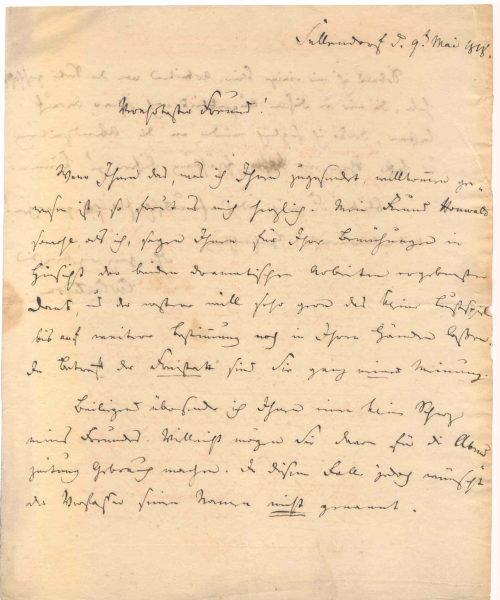 Sellendorf d. 9t Mai 1818.
Verehrtester Freund.
Wenn Ihnen das, was ich Ihnen zugesendet, willkommen ge-
wesen ist, so freut es mich herzlich. Mein Freund Houwald
sowohl als ich, sagen Ihnen für Ihre Bemühungen in
Hinsicht der beiden dramatischen Arbeiten ergebensten
Dank, u der erstere will sehr gern das kleine Lustspiel
bis auf weitere Bestimmung noch in Ihren Händen lassen.
In Betreff der Freistatt sind Sie ganz meiner Meinung.
Beiliegend übersende ich Ihnen einen kleinen Scherz
meines Freundes. Vielleicht mögen Sie davon für die Abend
zeitung Gebrauch machen. In diesem Falle jedoch wünscht
der Verfasser seinen Namen nicht genannt.